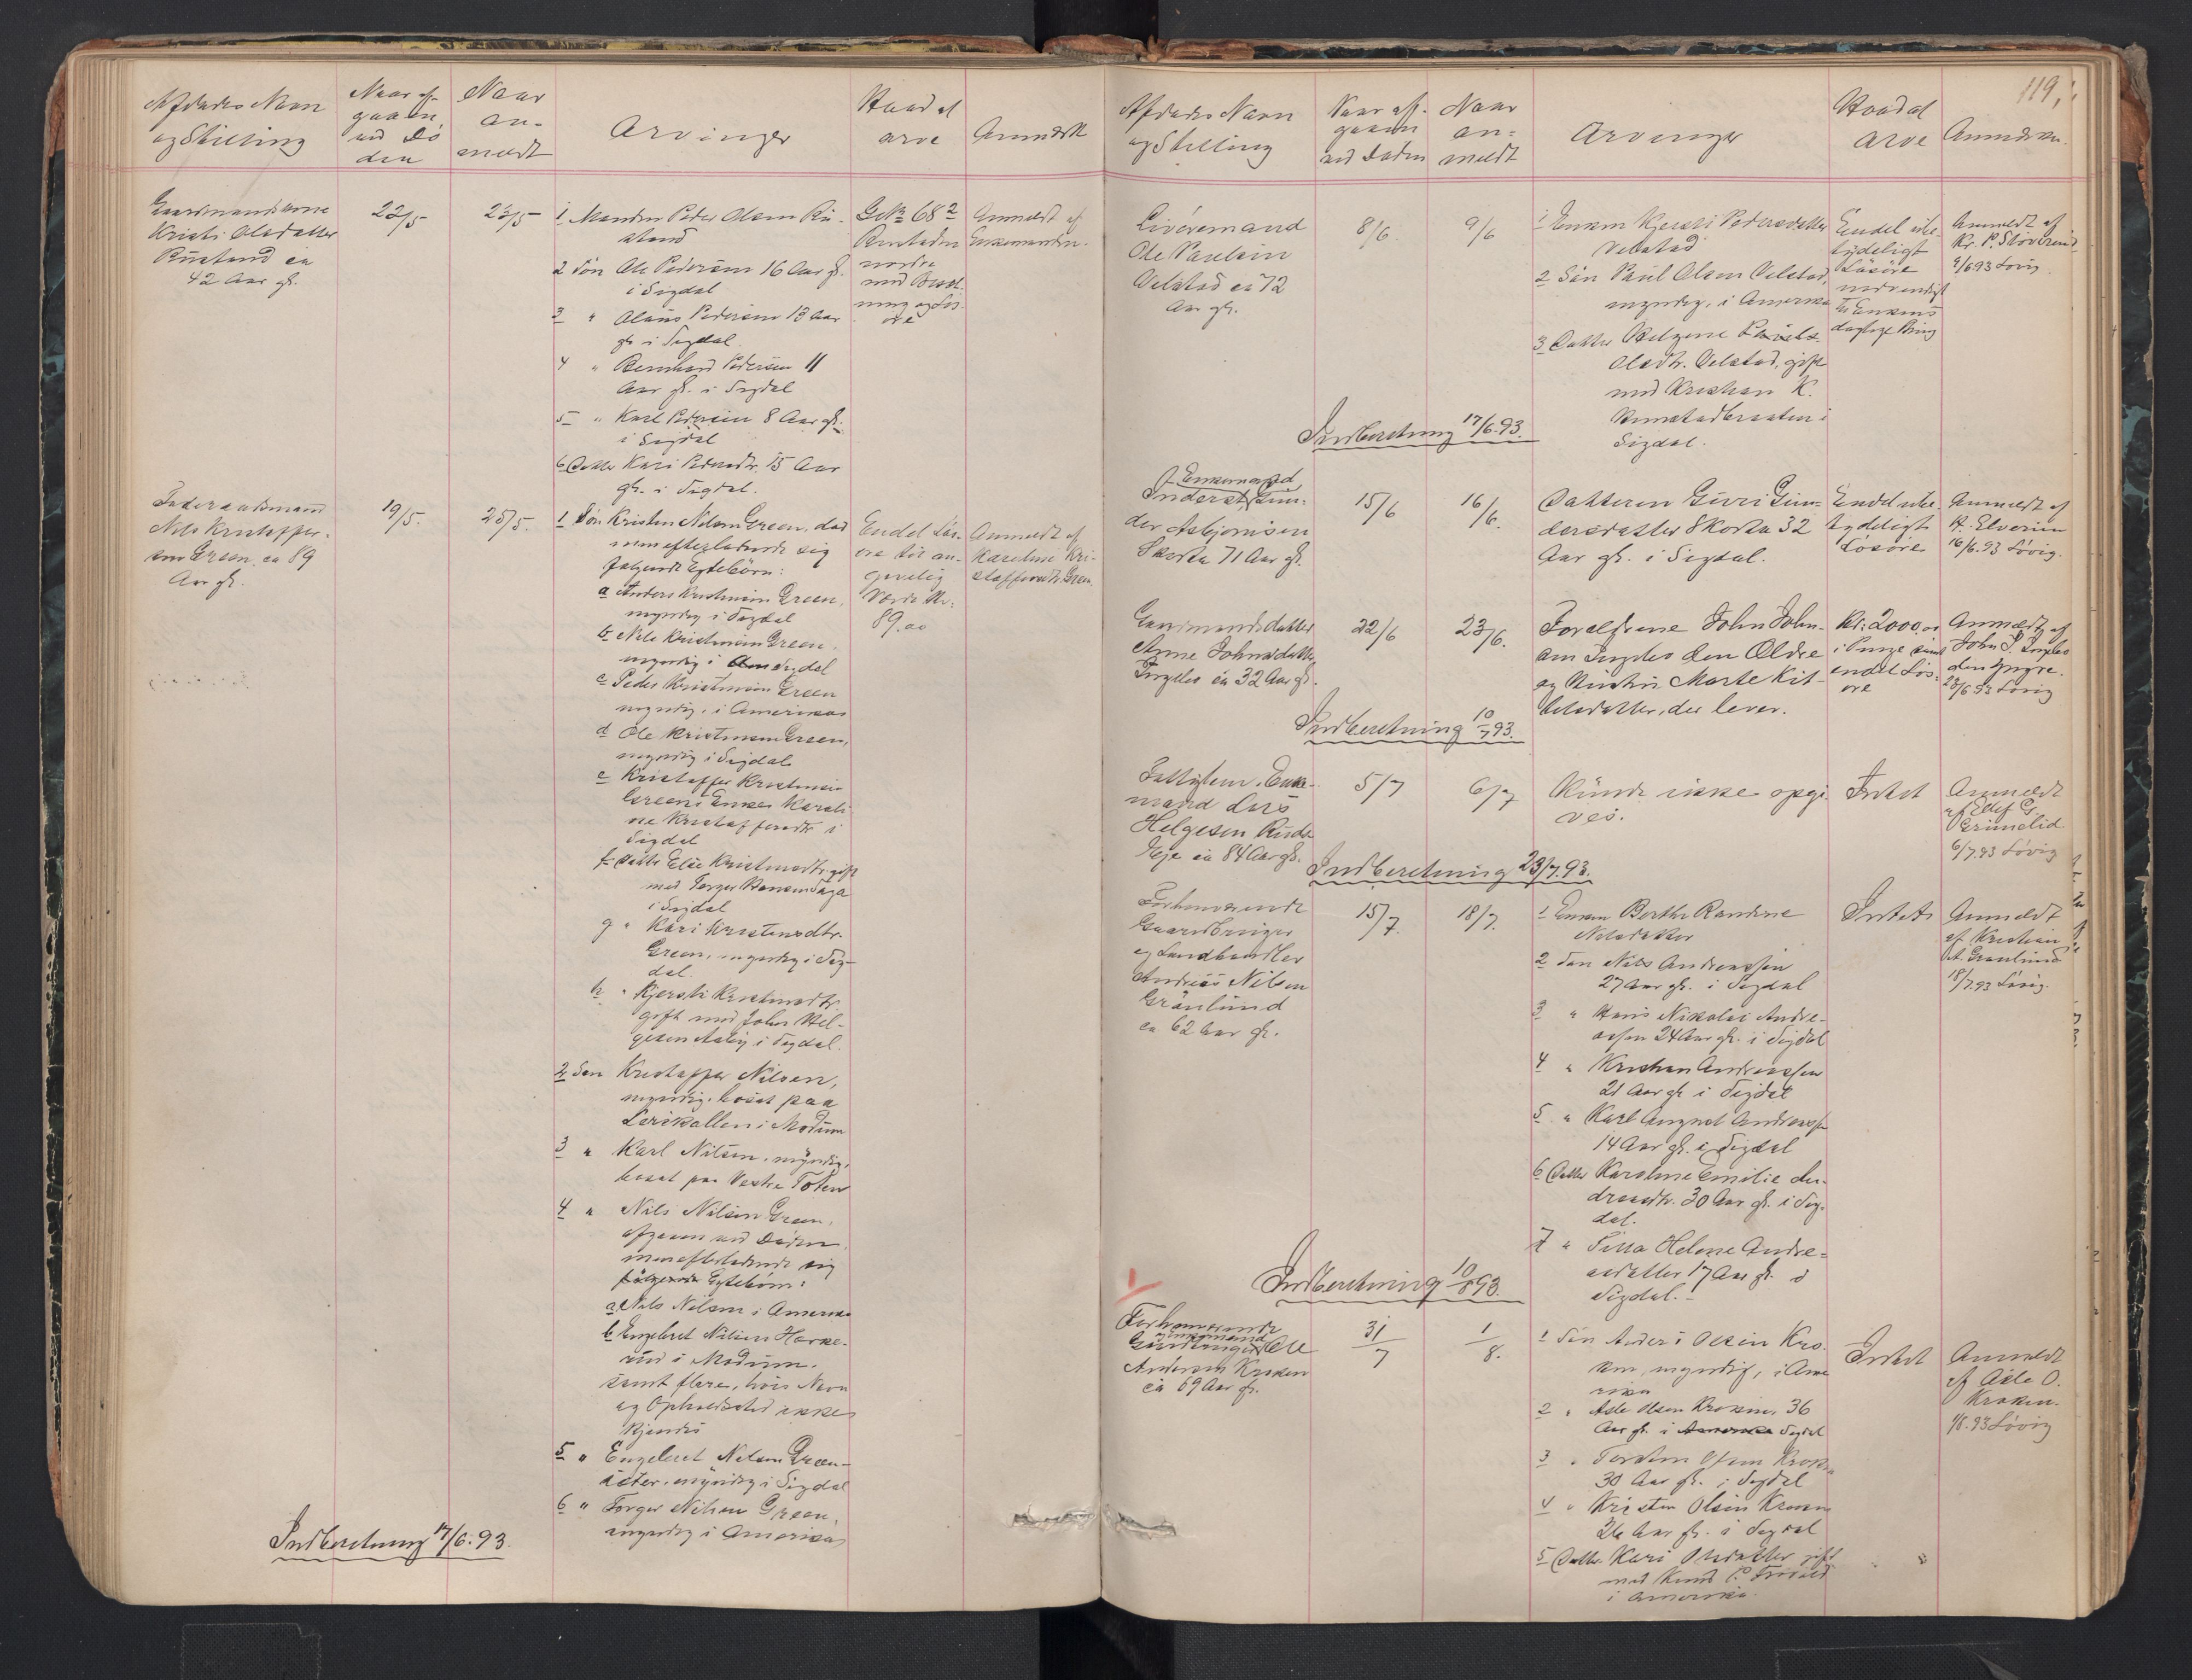 Afdødes Navn
og Stilling
Naar af-
gaaen
ved Dø
den
Naar
an-
meldt
Arvinger
Hvad at
arve
Anmærk
Gaardmandskone
Kristi Olsdatter
Rustand ca
42 Aar gl.
22/5
23/5
1 Manden Peder Olsen Ru-
stand
2 Søn Ole Pedersen 16 Aar gl.
i Sigdal
3 " Olaus Pedersen 13 Aar
gl. i Sigdal
4 " Bernhard Pedersen 11
Aar gl. i Sigdal
5 " Karl Pedersen 8 Aar gl.
i Sigdal
6 Datter Kari Pedersdtr. 15 Aar
gl. i Sigdal.
G No 68 2
nordre
med Besæt-
ning og Løs-
øre
Anmeldt af
Enkemanden.
Inderstmand
Nils Kristoffer-
sen Green ca 89
Aar gl.
19/5.
25/5.
1 Søn Kristen Nilsen Green, død
men efterladende sig
følgende Egtebørn:
a Anders Kristensen Green,
myndig i Sigdal
b Nils Kristensen Green,
myndig i Sigdal
c Peder Kristensen Green
myndig, i Amerika
d Ole Kristensen Green,
myndig i Sigdal
e Kristoffer Kristensen
Greens Enke Karoli-
ne Kristoffersdtr i
Sigdal
f Datter Elie Kristensdtr gift
med Torger Hansen Saga
i Sigdal
g " Kari Kristensdtr.
Green, myndig i Sig-
dal.
h " Kjersti Kristensdtr.
gift med John Hel-
gesen Aasby i Sigdal.
2 Søn Kristoffer Nilsen,
myndig, bosat paa
Lerskallen i Modum
3 " Karl Nilsen, myndig,
bosat paa Vestre Toten
4 " Nils Nilsen Green,
afgaaen ved Døden
men efterladende sig
følgende Egtebørn:
a. Nils Nilsen i Amerika
b Engebret Nilsen Horke-
rud i Modum.
samt flere, hvis Navn
og Opholdssted ikke
kjendes
5 " Engebret Nilsen Green-
eter, myndig i Sigdal
6 " Torger Nilsen Green,
myndig i Amerika
Endel Løs-
øre til an-
givelig
Værdi Kr.
89.00
Anmeldt af
Karoline Kri-
stoffersdtr. Green
Indberetning 17/6.93.
119,
Afdødes Navn
og Stilling
Naar af-
gaaen
ved Døden
Naar
an-
meldt
Arvinger
Hvad at
arve
Anmærkn.
Livøremand
Ole Paulsen
Velstad ca 72
Aar gl.
8/6.
9/6
1 Enken Kjersti Pedersdatter
Velstad
2 Søn Paul Olsen Velstad,
myndig, i Amerika
3 Datter Helgene
Olsdtr. Velstad, gift
med Kristian K.
i
Sigdal.
Endel ube-
tydeligt
Løsøre
nødvendigt
til Enkens
daglige Brug
Anmeldt af
Kr. P. Støverud
9/6 93 Løvig.
Indberetning 17/6.93.
Enkemand
Inderst, Gun-
der Asbjørnsen
Skorta 71 Aar gl.
15/6
16/6.
Datteren Guri Gun-
dersdatter Skorta 32
Aar gl. i Sigdal.
Endel ube-
tydeligt
Løsøre
Anmeldt af
H. Elverien
16/6.93 Løvig.
Gaardmandsdatter
Anne Johnsdatter
Ingeles ca 32 Aar gl.
22/6
23/6.
Forældrene John John-
sen Ingeles den Ældre
og Hustru Marte Kit-
telsdatter, der lever.
Kr: 2000,00
i Penge samt
endel Løs-
øre
Anmeldt af
John J. Ingeles
den yngre.
23/6 93 Løvig
Indberetning 10/7 93.
Fattiglem, Enke-
mand Lars
Helgesen Ruds-
Eje ca 84 Aar gl.
5/7
6/7
Kunde ikke opgi-
ves.
Intet
Anmeldt
af Elef G.
Grimelid.
6/7.93 Løvig
Indberetning 23/7.93.
Forhenværende
Gaardbruger
og Landhandler
Andreas Nilsen
Grønlund
ca 62 Aar gl.
15/7.
18/7.
1 Enken Berthe Randine
Nilsdatter
2 Søn Nils Andreassen
27 Aar gl. i Sigdal
3 " Hans Nikolai Andre-
assen 24 Aar gl. i Sigdal
4 " Kristian Andreassen
21 Aar gl. i Sigdal
5 " Karl August Andreassen
14 Aar gl. i Sigdal
6 Datter Karoline Emilie An-
dreasdtr. 30 Aar gl. i Sig-
dal.
7 " Tilla Helene Andre-
asdatter 17 Aar gl. i
Sigdal.
Intet
Anmeldt
af Kristian
A. Grønlund
18/7.93 Løvig.
Indberetning 10/8 93.
Forhenværende
Enkemand
Gaardbruger Ole
Andersen Kroken
ca 69 Aar gl.
31/7
1/8.
1 Søn Anders Olsen Kro-
ken, myndig, i Ame
rika
2 " Asle Olsen Kroken, 36
Aar gl. i Amerika Sigdal
3 " Torsten Olsen Kroken
30 Aar gl. i Sigdal
4 " Kristen Olsen Kroken
26 Aar gl. i Sigdal
5 Datter Kari Olsdatter gift
med Knud P.
i Amerika.
Intet
Anmeldt
af Asle O.
Kroken.
1/8.93 Løvig